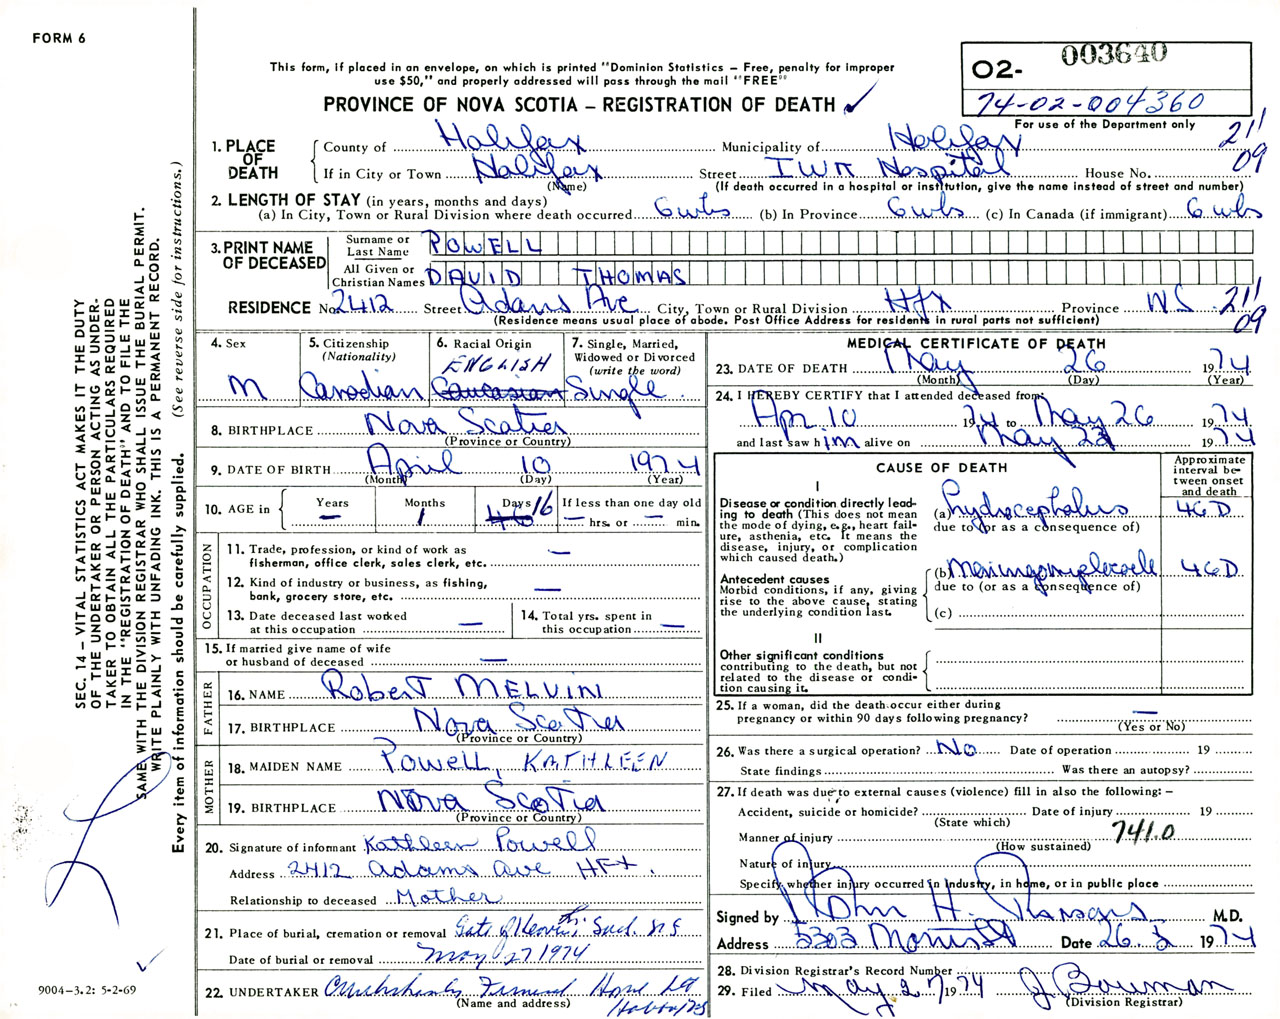 FORM 6
003640
O2-
74-02-004360
For use of the Department only
This form, if placed in an envelope, on which is printed "Dominion Statistics – Free, penalty for improper
use $50," and properly addressed will pass through the mail "FREE"
PROVINCE OF NOVA SCOTIA – REGISTRATION OF DEATH ✓
SEC. 14 – VITAL STATISTICS ACT MAKES IT THE DUTY
OF THE UNDERTAKER OR PERSON ACTING AS UNDER-
TAKER TO OBTAIN ALL THE PARTICULARS REQUIRED
IN THE "REGISTRATION OF DEATH" AND TO FILE THE
SAME WITH THE DIVISION REGISTRAR WHO SHALL ISSUE THE BURIAL PERMIT.
WRITE PLAINLY WITH UNFADING INK. THIS IS A PERMANENT RECORD.
Every item of information should be carefully supplied. (See reverse side for instructions.)
1. PLACE OF DEATH
County of Halifax Municipality of Halifax
211
09
If in City or Town Halifax Street IWK Hospital House No.
(Name) (If death occurred in a hospital or institution, give the name instead of street and number)
2. LENGTH OF STAY (in years, months and days)
(a) In City, Town or Rural Division where death occurred 6 wks (b) In Province 6 wks (c) In Canada (if immigrant) 6 wks
3. PRINT NAME OF DECEASED
Surname or Last Name POWELL
All Given or Christian Names DAVID THOMAS
RESIDENCE No. 2412 Street Adams Ave City, Town or Rural Division Hfx Province N.S. 211
09
(Residence means usual place of abode. Post Office Address for residents in rural parts not sufficient)
4. Sex
M
5. Citizenship
(Nationality)
Canadian
6. Racial Origin
ENGLISH
Caucasian
7. Single, Married,
Widowed or Divorced
(write the word)
Single
8. BIRTHPLACE Nova Scotia
(Province or Country)
9. DATE OF BIRTH April 10 1974
(Month) (Day) (Year)
10. AGE in
Years –
Months 1
Days 16
If less than one day old
– hrs. or – min.
OCCUPATION
11. Trade, profession, or kind of work as
fisherman, office clerk, sales clerk, etc. –
12. Kind of industry or business, as fishing,
bank, grocery store, etc. –
13. Date deceased last worked
at this occupation –
14. Total yrs. spent in
this occupation –
15. If married give name of wife
or husband of deceased –
FATHER
16. NAME Robert MELVIN
17. BIRTHPLACE Nova Scotia
(Province or Country)
MOTHER
18. MAIDEN NAME Powell, KATHLEEN
19. BIRTHPLACE Nova Scotia
(Province or Country)
20. Signature of informant Kathleen Powell
Address 2412 Adams Ave HFX.
Relationship to deceased Mother
21. Place of burial, cremation or removal Gate of Heaven
Date of burial or removal May 27 1974
22. UNDERTAKER Funeral Home
(Name and address)
9004-3.2: 5-2-69
MEDICAL CERTIFICATE OF DEATH
23. DATE OF DEATH May 26 1974
(Month) (Day) (Year)
24. I HEREBY CERTIFY that I attended deceased from
Apr. 10 1974 to May 26 1974
and last saw him alive on May 1974
CAUSE OF DEATH
Approximate
interval be-
tween onset
and death
I
Disease or condition directly lead-
ing to death (This does not mean
the mode of dying, e.g., heart fail-
ure, asthenia, etc. It means the
disease, injury, or complication
which caused death.)
(a) Hydrocephalus 46D
due to (or as a consequence of)
Antecedent causes
Morbid conditions, if any, giving
rise to the above cause, stating
the underlying condition last.
(b) Meningomyelocele 46D
due to (or as a consequence of)
(c)
II
Other significant conditions
contributing to the death, but not
related to the disease or condi-
tion causing it.
25. If a woman, did the death occur either during
pregnancy or within 90 days following pregnancy? –
(Yes or No)
26. Was there a surgical operation? No Date of operation 19
State findings Was there an autopsy?
27. If death was due to external causes (violence) fill in also the following: –
Accident, suicide or homicide? Date of injury 19
(State which)
741.0
Manner of injury
(How sustained)
Nature of injury
Specify whether injury occurred in industry, in home, or in public place
Signed by John H. M.D.
Address 5303 Morris St Date 26.5 1974
28. Division Registrar's Record Number
29. Filed May 27 1974 J Bowman
(Division Registrar)